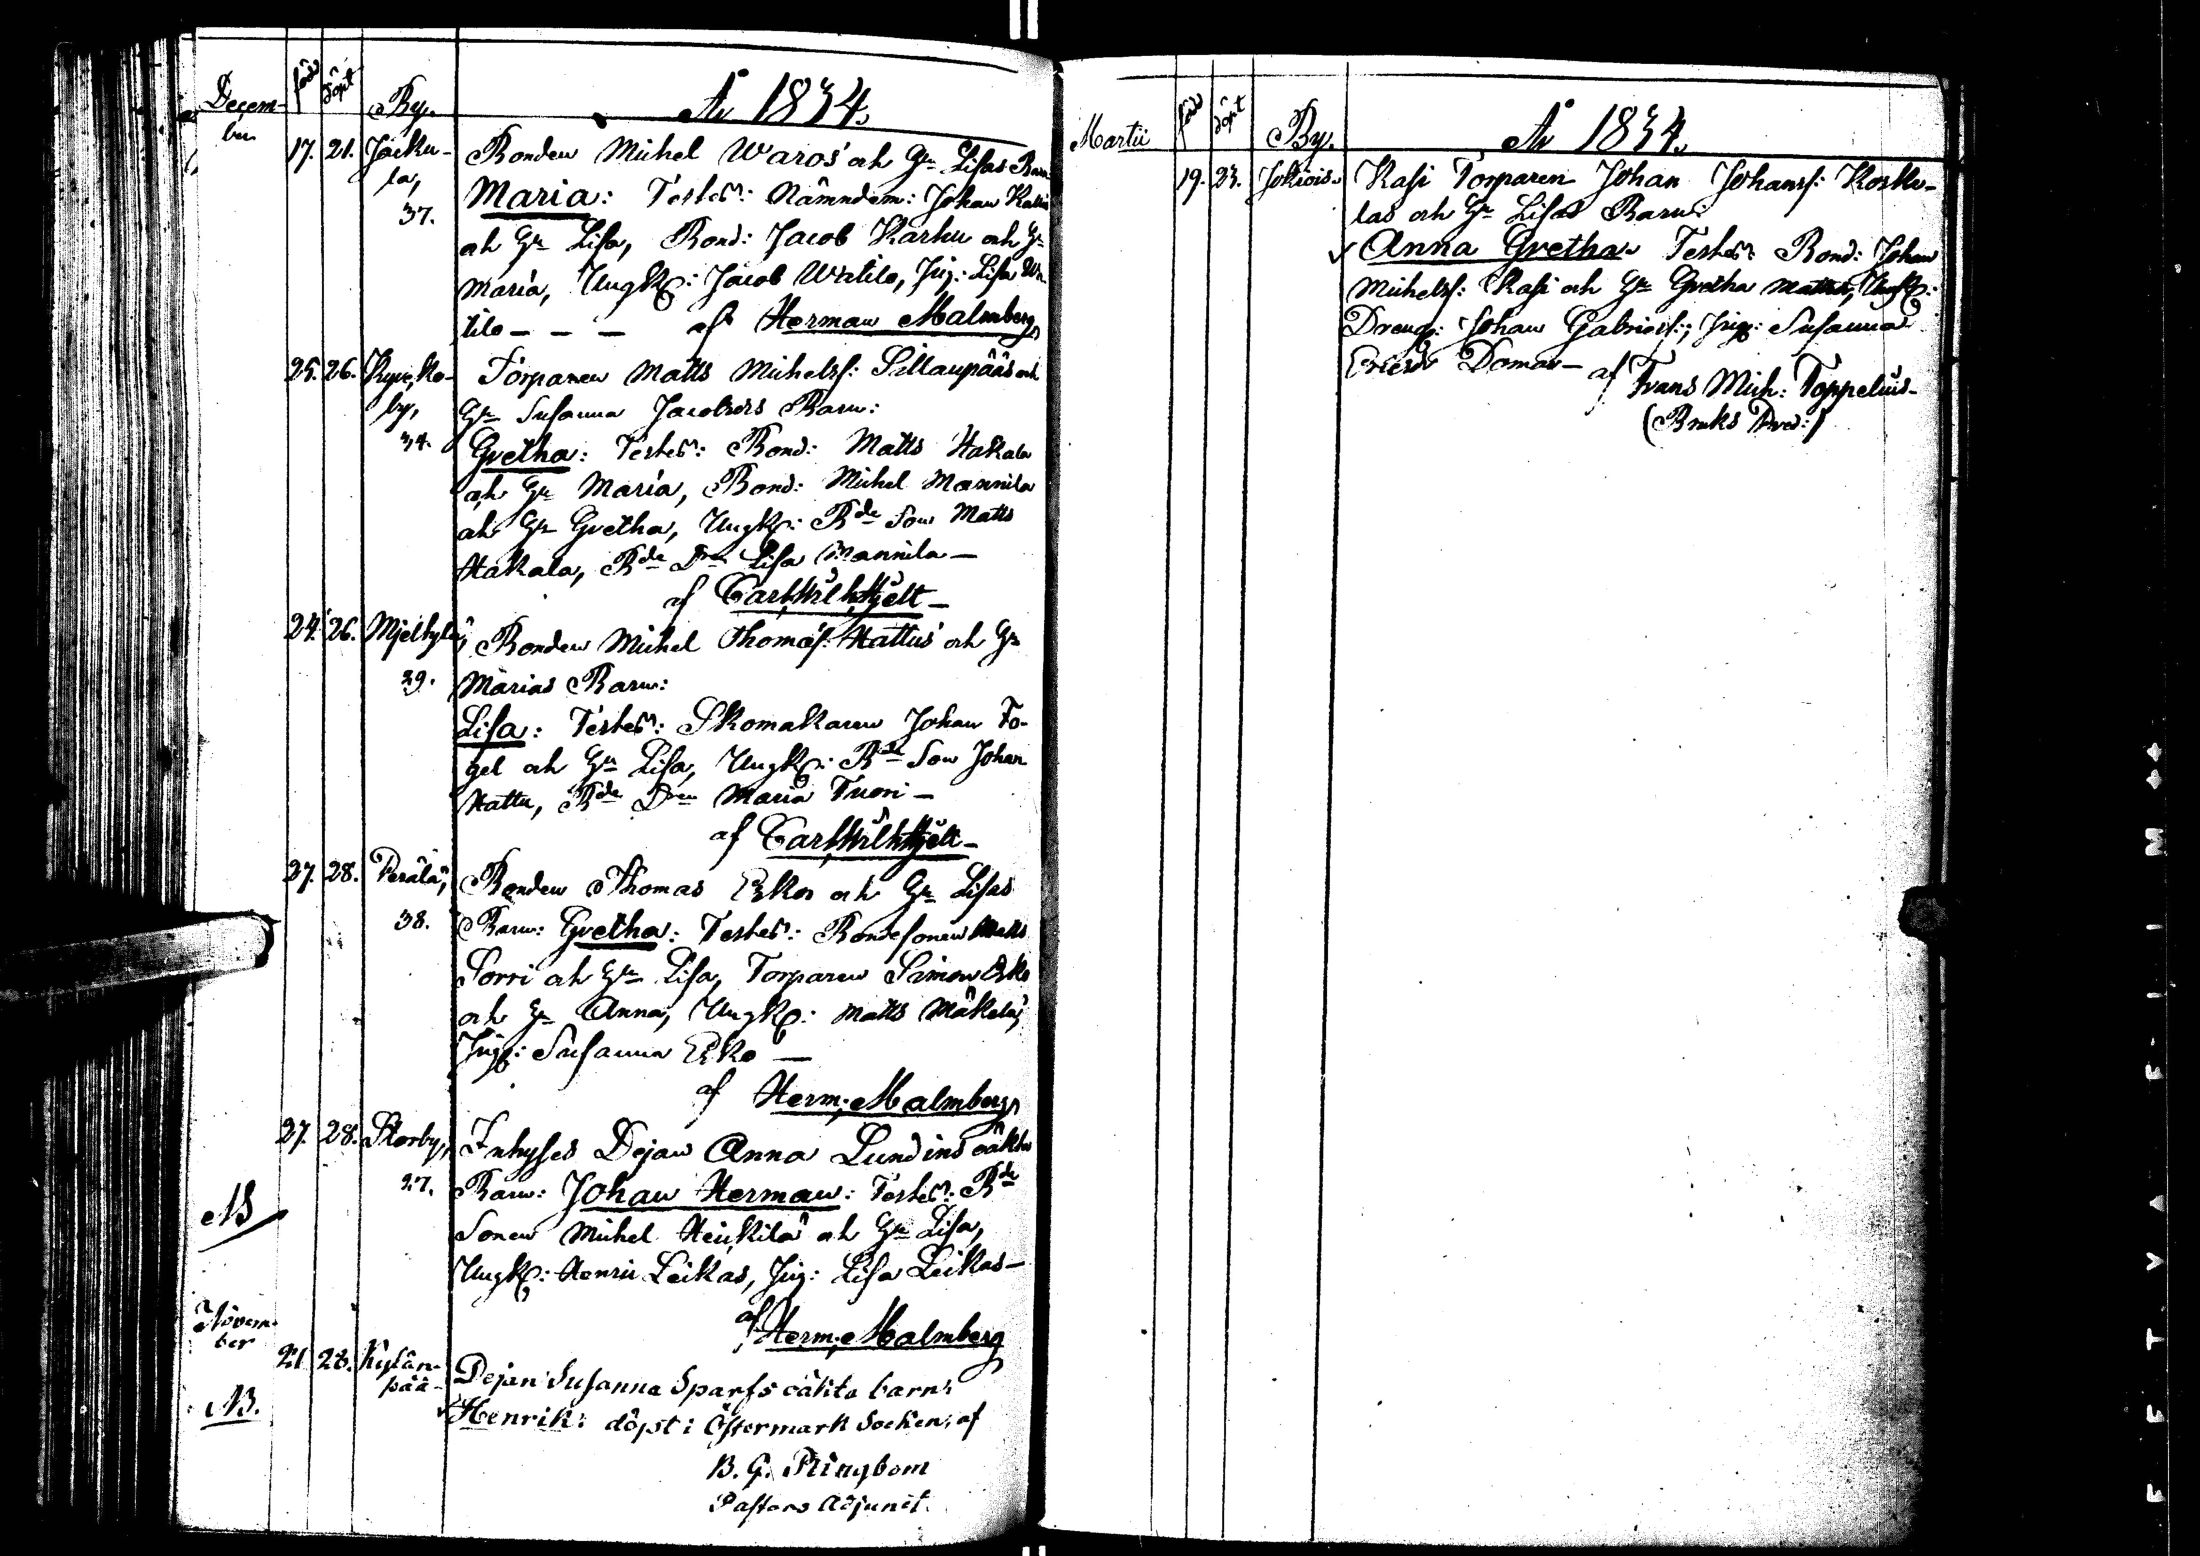 Decem-
ber
född
döpt
By.
År 1834.
17. 21. Jäcku-
la,
37.
Bonden Michel Waros' och Hu Lisas Barn
Maria: Testes: Nämndem: Johan
och Hu Lisa, Bond: Jacob Karhu och Hu
Maria, Ungk: Jacob Watilo, Pig: Lisa Wa-
tilo — — — af Herman Malmberg
25. 26.
by,
34.
Torparen Matts Michelss: Sillanpääs och
Hu Susanna Jacobsdrs Barn:
Gretha: Testes: Bond: Matts Hakala
och Hu Maria, Bond: Michel Mannila
och Hu Gretha, Ungk: Bde Son Matts
Hakala, Bde Dren Lisa Mannila —
af Carl Wilh Hjelt —
24. 26. Mjethylä,
29.
Bonden Michel Thomass: Hattus' och Hu
Marias Barn:
Lisa: Testes: Skomakaren Johan Fo-
gel och Hu Lisa, Ungk: Bde Son Johan
Hattu, Bde Dren Maria Tuori —
af Carl Wilh Hjelt —
27. 28. Perälä,
38.
Bonden Thomas Eskos och Hu Lisas
Barn: Gretha: Testes: Bondesonen Matts
Sorri och Hu Lisa, Torparen Simon Esko
och Hu Anna, Ungk: Matts Mäkelä,
Pig: Susanna Esko —
af Herm: Malmberg
27. 28. Storby,
27.
Inhyses Dejan Anna Lundins oäkta
Barn: Johan Herman: Testes: Bde
Sonen Michel Heikkilä och Hu Lisa,
Ungk: Henric Leikas, Pig: Lisa Leikas —
NB
af Herm: Malmberg
Novem-
ber
21 23. Kylän-
pää-
NB.
Dejan Susanna Sparfs oäkta barn:
Henrik: döpt i Östermark Socken; af
B. G. Ringbom
Pastors Adjunct.
Martii
född
döpt
By.
År 1834.
19. 23. Jokiois.
Kasi Torparen Johan Johanss: Koske-
las och Hu Lisas Barn:
Anna Gretha. Testes: Bond: Johan
Michelss: Kasi och Hu Gretha
Dreng: Johan Gabrielss:; Pig: Susanna
Ericsdr Domar — af Frans Mich: Toppelius —
(Bruks Pred:)
F E T V A F-I I M